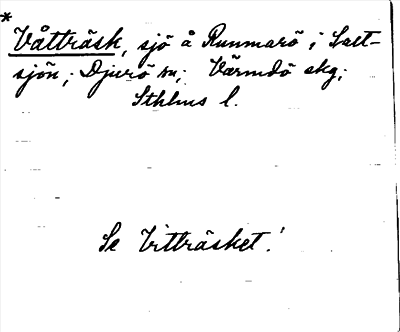 *
Våtträsk, sjö å Runmarö i Salt-
sjön; Djurö sn; Värmdö skg;
Sthlms l.
Se Vitträsket!